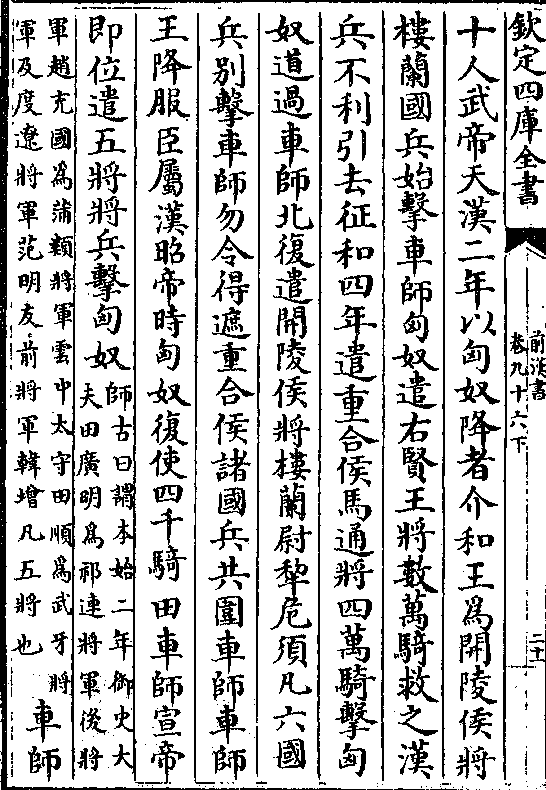 欽定四庫全書
前漢書
卷九十六下
二十
十人武帝天漢二年以匈奴降者介和王為開陵侯將
樓蘭國兵始擊車師匈奴遣右賢王將數萬騎救之漢
兵不利引去征和四年遣重合侯馬通將四萬騎擊匈
奴道過車師北復遣開陵侯將樓蘭尉犂危須凡六國
兵別擊車師勿令得遮重合侯諸國兵共圍車師車師
王降服臣屬漢昭帝時匈奴復使四千騎田車師宣帝
即位遣五將將兵擊匈奴師古曰謂本始二年御史大
夫田廣明為祁連將軍後將
軍趙充國為蒲類將軍雲中太守田順為武牙將
軍及度遼將軍范明友前將軍韓增凡五將也
車師